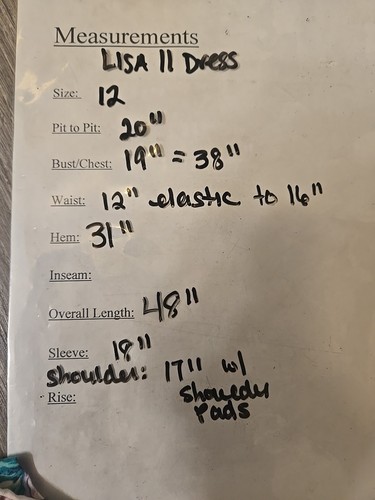 Measurements
LISA II Dress
Size: 12
Pit to Pit: 20"
Bust/Chest: 19" = 38"
Waist: 12" elastic to 16"
Hem: 31"
Inseam:
Overall Length: 48"
Sleeve: 18"
Shoulder: 17" w/
Rise: Shoulder
Pads